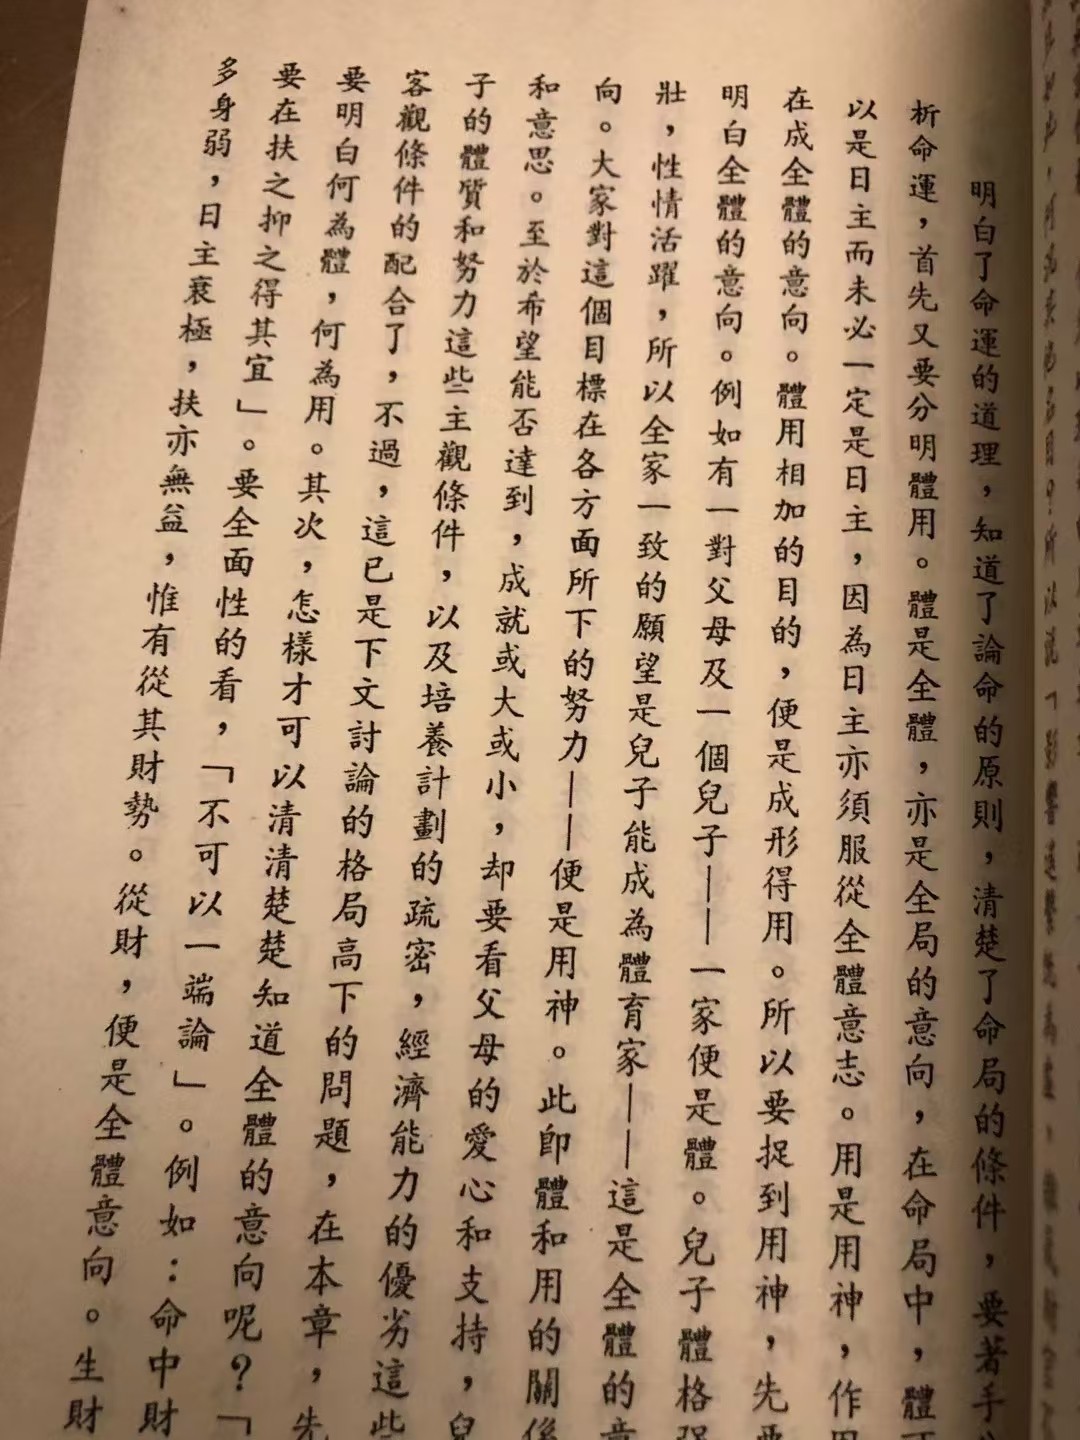 明白了命運的道理，知道了論命的原則，清楚了命局的條件，要著手
析命運，首先又要分明體用。體是全體，亦是全局的意向，在命局中，體
以是日主而未必一定是日主，因為日主亦須服從全體意志。用是用神，作
在成全體的意向。體用相加的目的，便是成形得用。所以要捉到用神，先
明白全體的意向。例如有一對父母及一個兒子——一家便是體。兒子體格
壯，性情活躍，所以全家一致的願望是兒子能成為體育家——這是全體的
向。大家對這個目標在各方面所下的努力——便是用神。此即體和用的關係
和意思。至於希望能否達到，成就或大或小，却要看父母的愛心和支持，兒
子的體質和努力這些主觀條件，以及培養計劃的疏密，經濟能力的優劣這些
客觀條件的配合了，不過，這已是下文討論的格局高下的問題，在本章，先
要明白何為體，何為用。其次，怎樣才可以清清楚楚知道全體的意向呢？「
要在扶之抑之得其宜」。要全面性的看，「不可以一端論」。例如：命中財
多身弱，日主衰極，扶亦無益，惟有從其財勢。從財，便是全體意向。生財